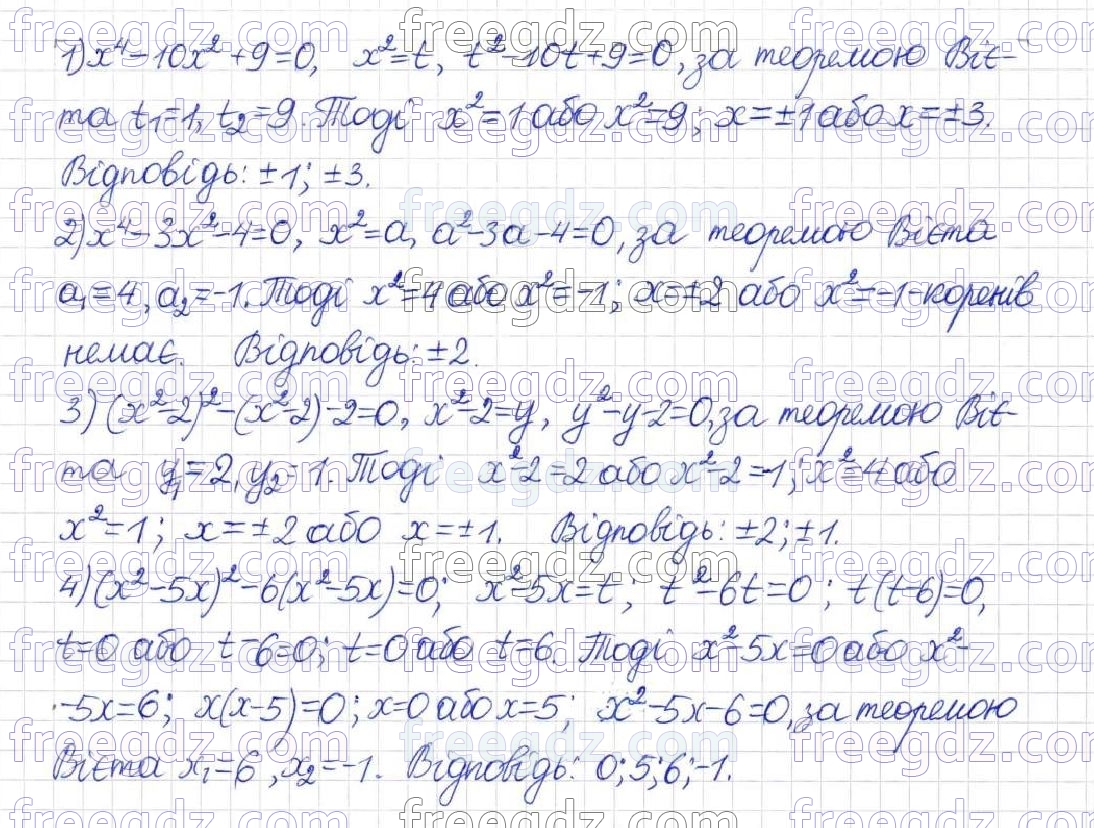 1) x⁴-10x²+9=0, x²=t, t²-10t+9=0, за теоремою Віє-
та t₁=1, t₂=9. Тоді x²=1 або x²=9; x=±1 або x=±3.
Відповідь: ±1; ±3.
2) x⁴-3x²-4=0, x²=a, a²-3a-4=0, за теоремою Вієта
a₁=4, a₂=-1. Тоді x²=4 або x²=-1; x=±2 або x²=-1-коренів
немає. Відповідь: ±2.
3) (x²-2)²-(x²-2)-2=0, x²-2=y, y²-y-2=0, за теоремою Віє-
та y₁=2, y₂=-1. Тоді x²-2=2 або x²-2=-1; x²=4 або
x²=1; x=±2 або x=±1. Відповідь: ±2; ±1.
4) (x²-5x)²-6(x²-5x)=0; x²-5x=t; t²-6t=0; t(t-6)=0,
t=0 або t-6=0; t=0 або t=6. Тоді x²-5x=0 або x²-
-5x=6; x(x-5)=0; x=0 або x=5; x²-5x-6=0, за теоремою
Вієта x₁=6, x₂=-1. Відповідь: 0; 5; 6; -1.
freegdz.com